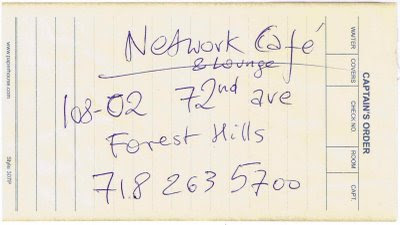 Network Café
& Lounge
108-02 72nd ave
Forest Hills
718 263 5700
CAPTAIN'S ORDER
WAITER COVERS CHECK NO. ROOM CAPT.
www.paperhouse.com
Style 107P